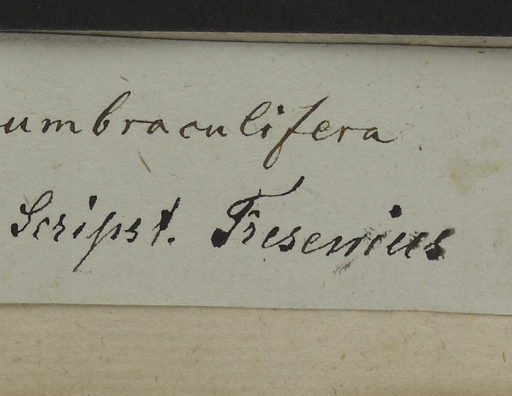 umbraculifera
Scripst. Fresenius